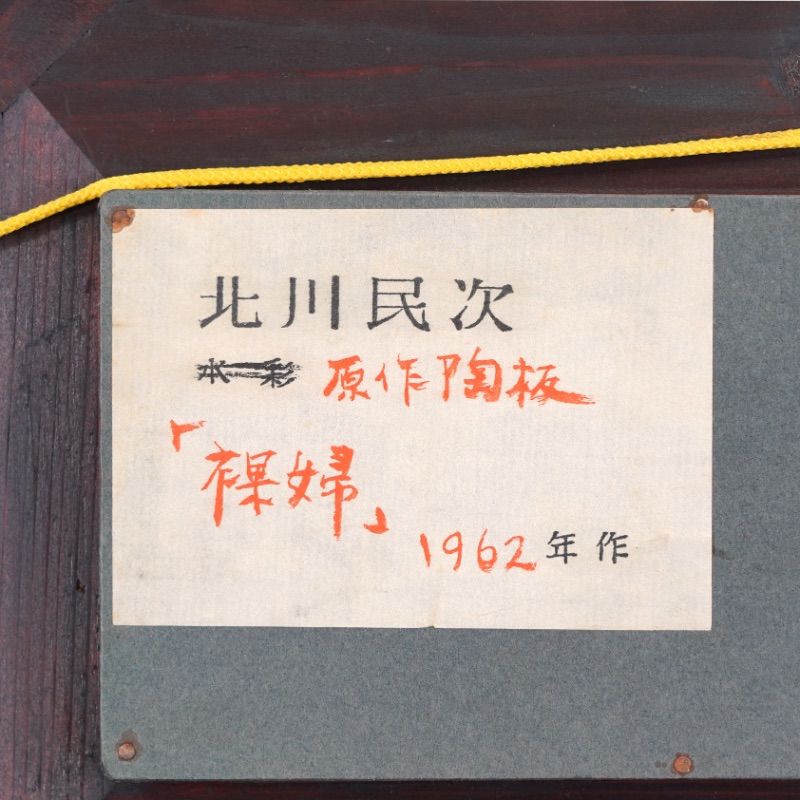 北川民次
原作陶板
「裸婦」
1962年作